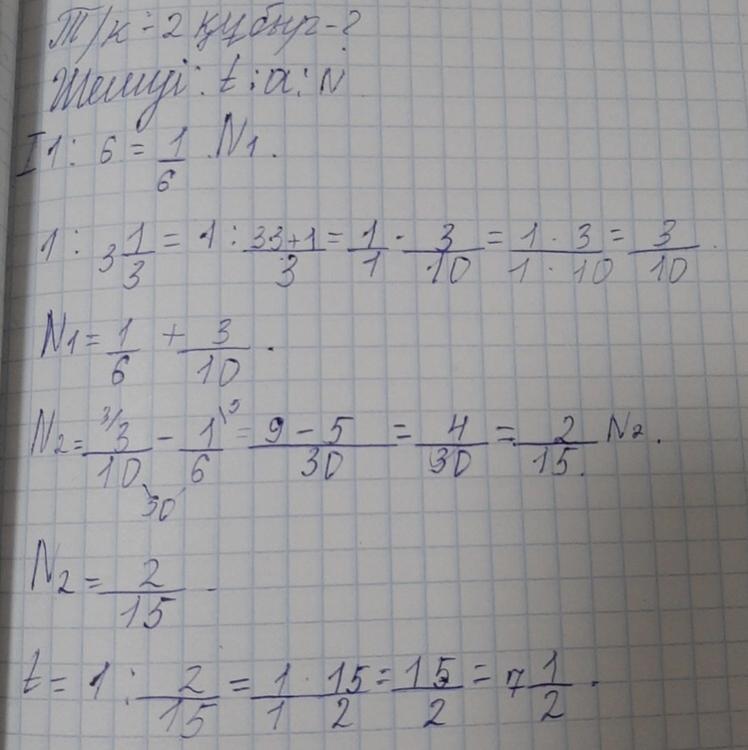 Т/к - 2 құбыр - ?
Шешуі: t; a; N
I 1 : 6 = 1/6 N1.
1 : 3 1/3 = 1 : 33+1/3 = 1/1 · 3/10 = 1 · 3/1 · 10 = 3/10.
N1 = 1/6 + 3/10.
N2 = 3/ 3/10 - 1/6 \5 = 9 - 5/30 = 4/30 = 2/15. N2.
30
N2 = 2/15 -
t = 1 : 2/15 = 1/1 · 15/2 = 15/2 = 7 1/2.